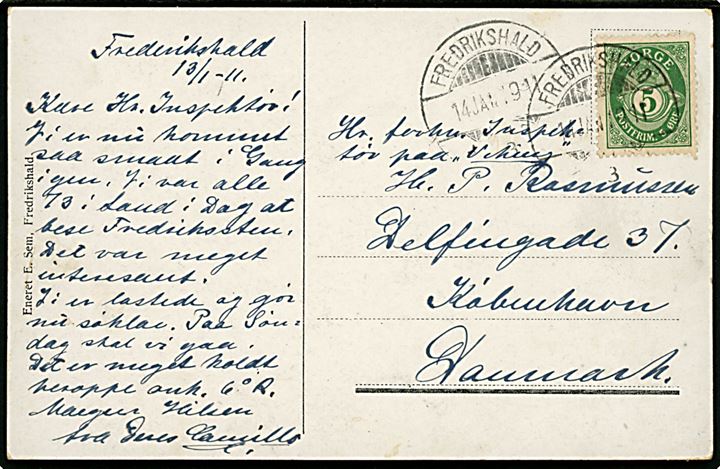 Frederikshald
13/1-11.
Kære Hr. Inspektør!
Vi er nu kommet
saa smaat i Gang
igen. Vi var alle
73 i Land i Dag at
bese Fredriksten.
Det var meget
interesant.
Vi er lastede og gør
nu søklar. Paa Søn-
dag skal vi gaa.
Det er meget koldt
heroppe 6° R.
Mange Hilsen
fra Deres Camillo
Eneret E. Sem, Fredrikshald.
FREDRIKSHALD
14 JAN. 1911
FREDRIKSHALD
3
NORGE
5
POSTFRIM. 5 ØRE
Hr. forhen Inspek-
tør paa „Viking"
Hr. P. Rasmussen
Delfingade 37.
København
Danmark.